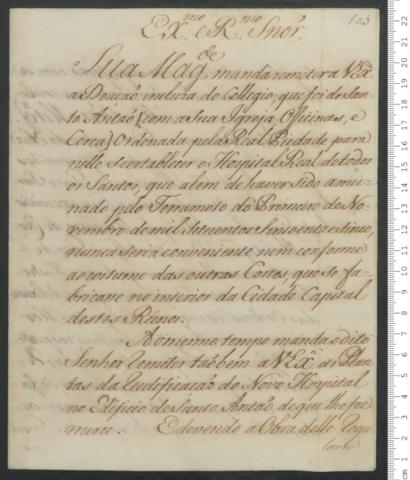 103
Ex.mo e R.mo Snõr.
Sua Mag.de manda remeter a V Ex.ª
a Doução incluza do Collegio, que foi de San-
to Antaõ [com a Sua Igreja, Officinas, e
Cerca] Ordenada pela Real Piedade para
nelle se estabelecer o Hospital Real de todos
os Santos, que alem de haver sido arrui-
nado pelo Terramoto do Primeiro de No-
vembro de mil Setecentos Sincoenta e sinco,
nunca seria conveniente nem conforme
ao costume das outras Cortes, que se fa-
bricase no interior da Cidade Capital
destes Reinos.
Ao mesmo tempo manda o dito
Senhor remeter taõbem a V Ex.ª as Plan-
tas da reedificaçaõ do Novo Hospital
no Edificio de Santo Antaõ, de que lhe fez
merce. E devendo a Obra delle regu
larse
cm 1 2 3 4 5 6 7 8 9 10 11 12 13 14 15 16 17 18 19 20 21 22